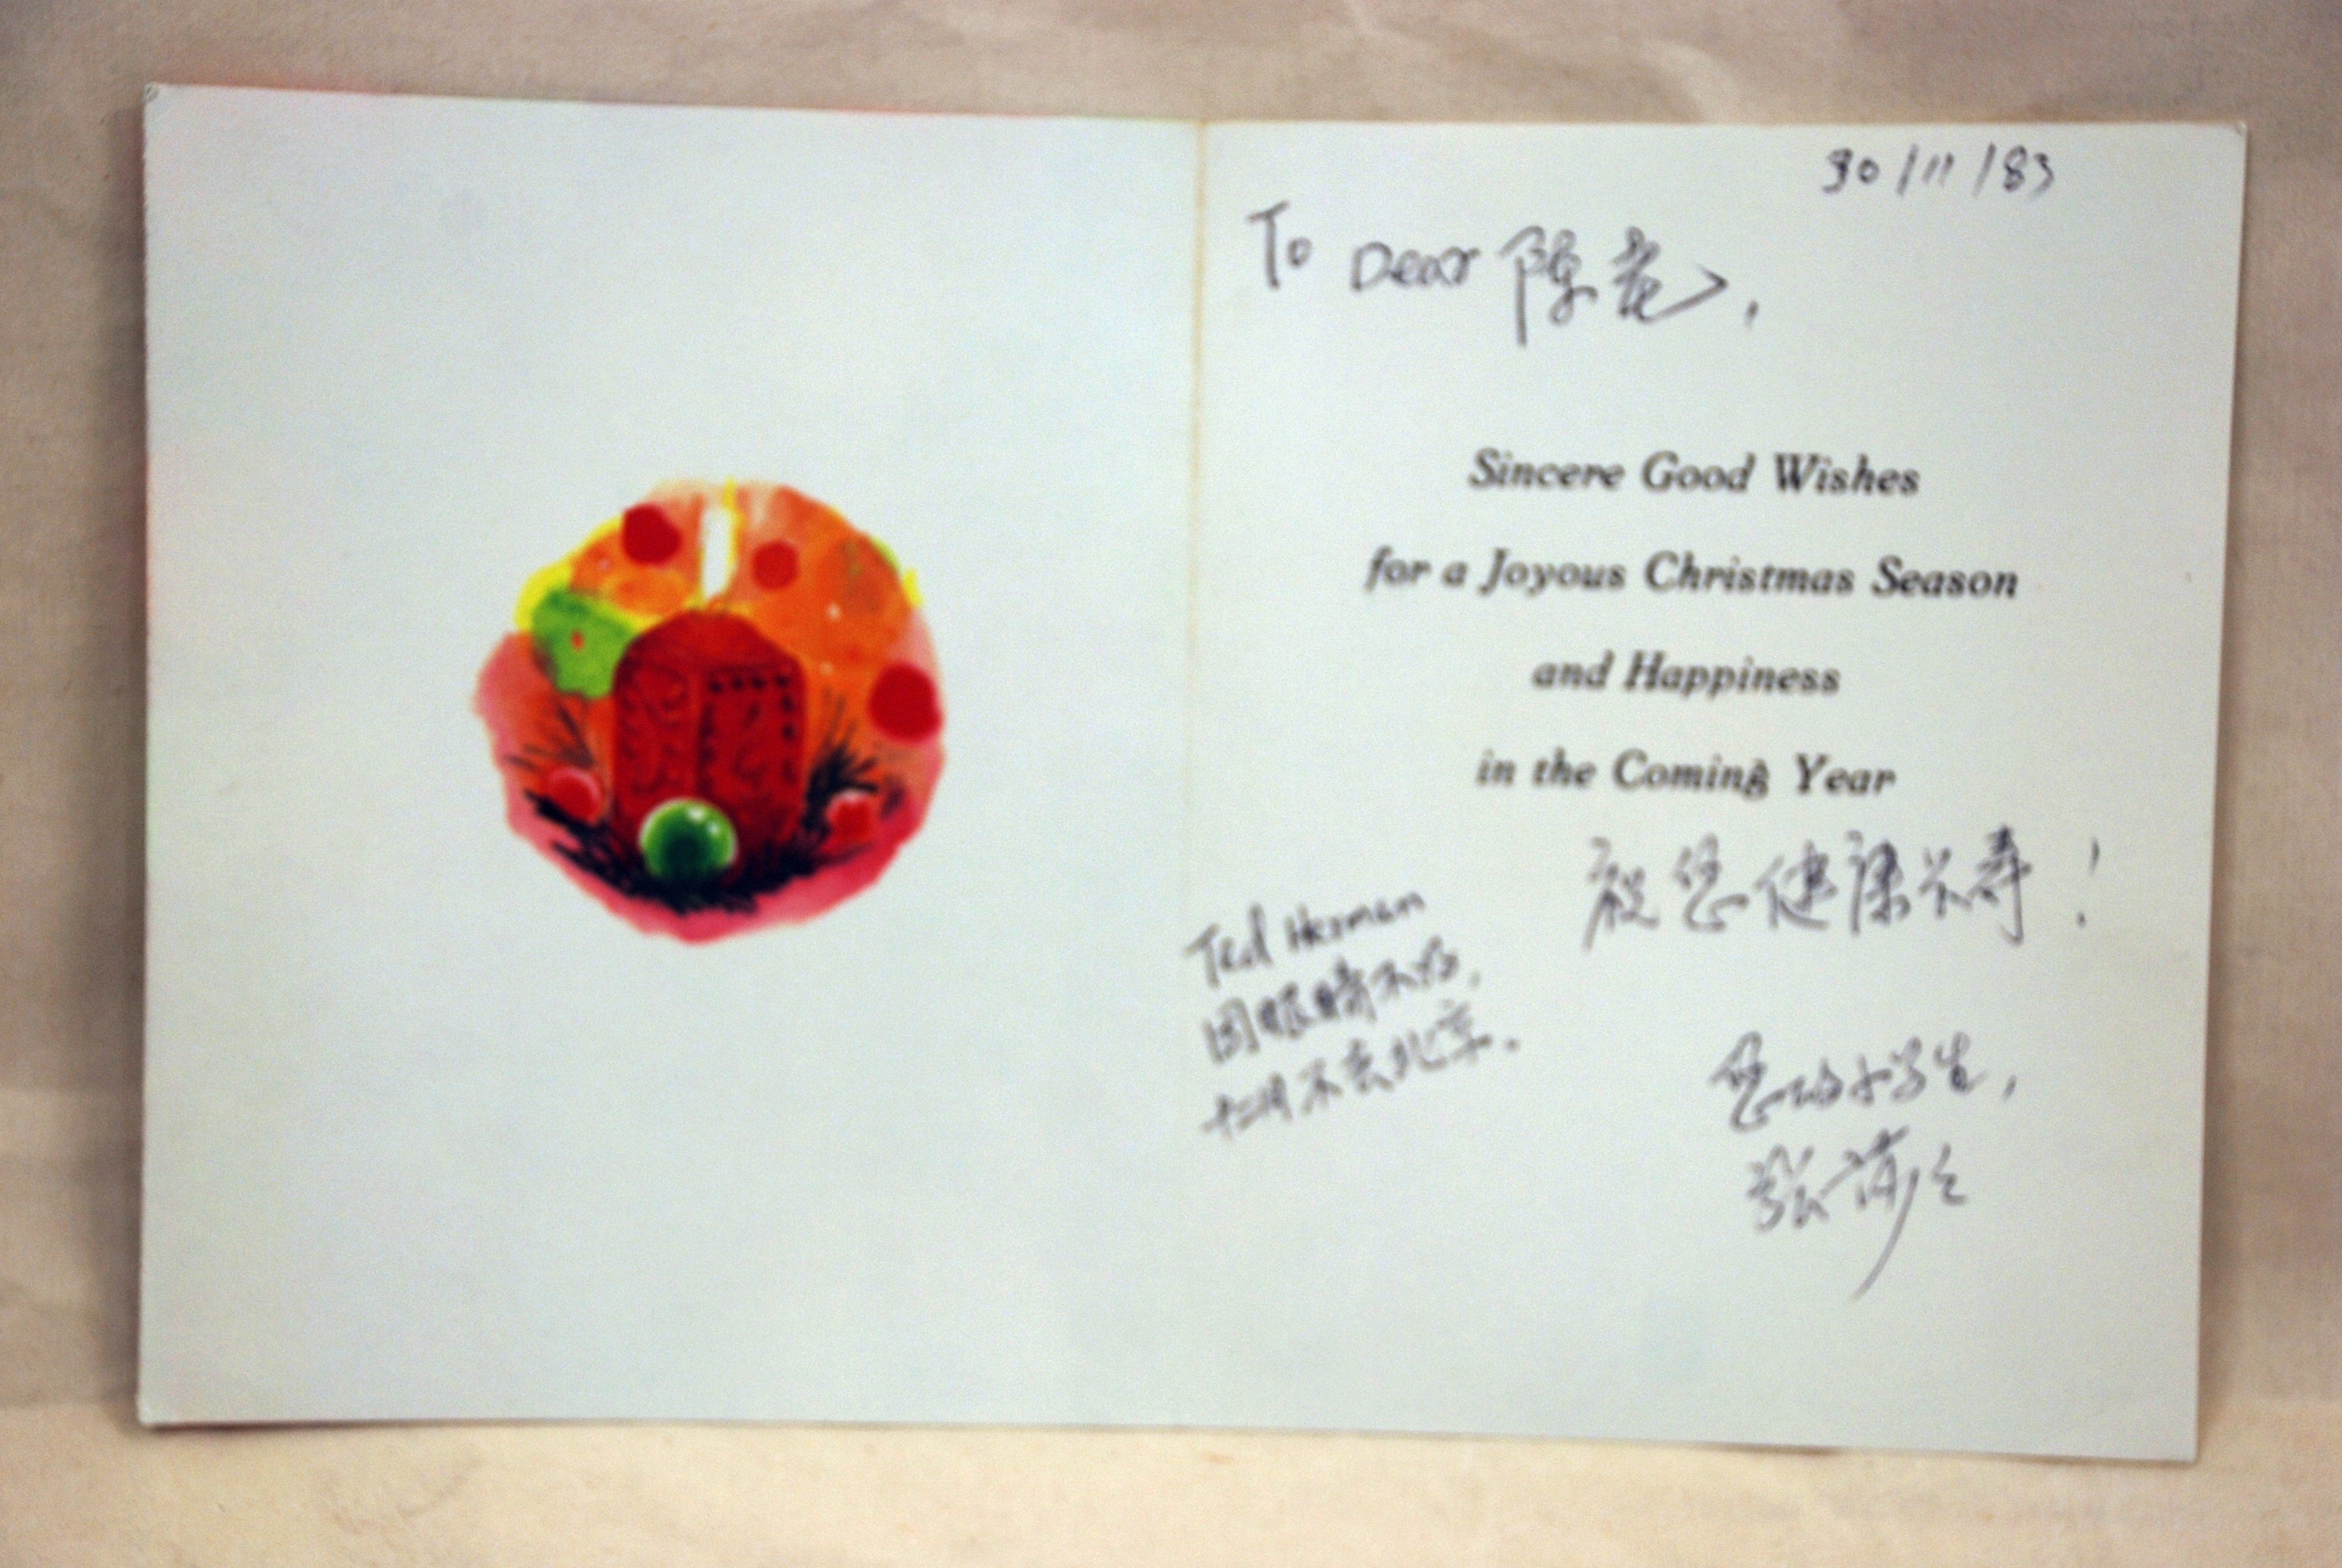 30/11/83
To Dear 陈老,
Sincere Good Wishes
for a Joyous Christmas Season
and Happiness
in the Coming Year
祝您健康长寿!
Ted Herman
因眼睛不好,
十二月不去北京.
您的小学生,
张